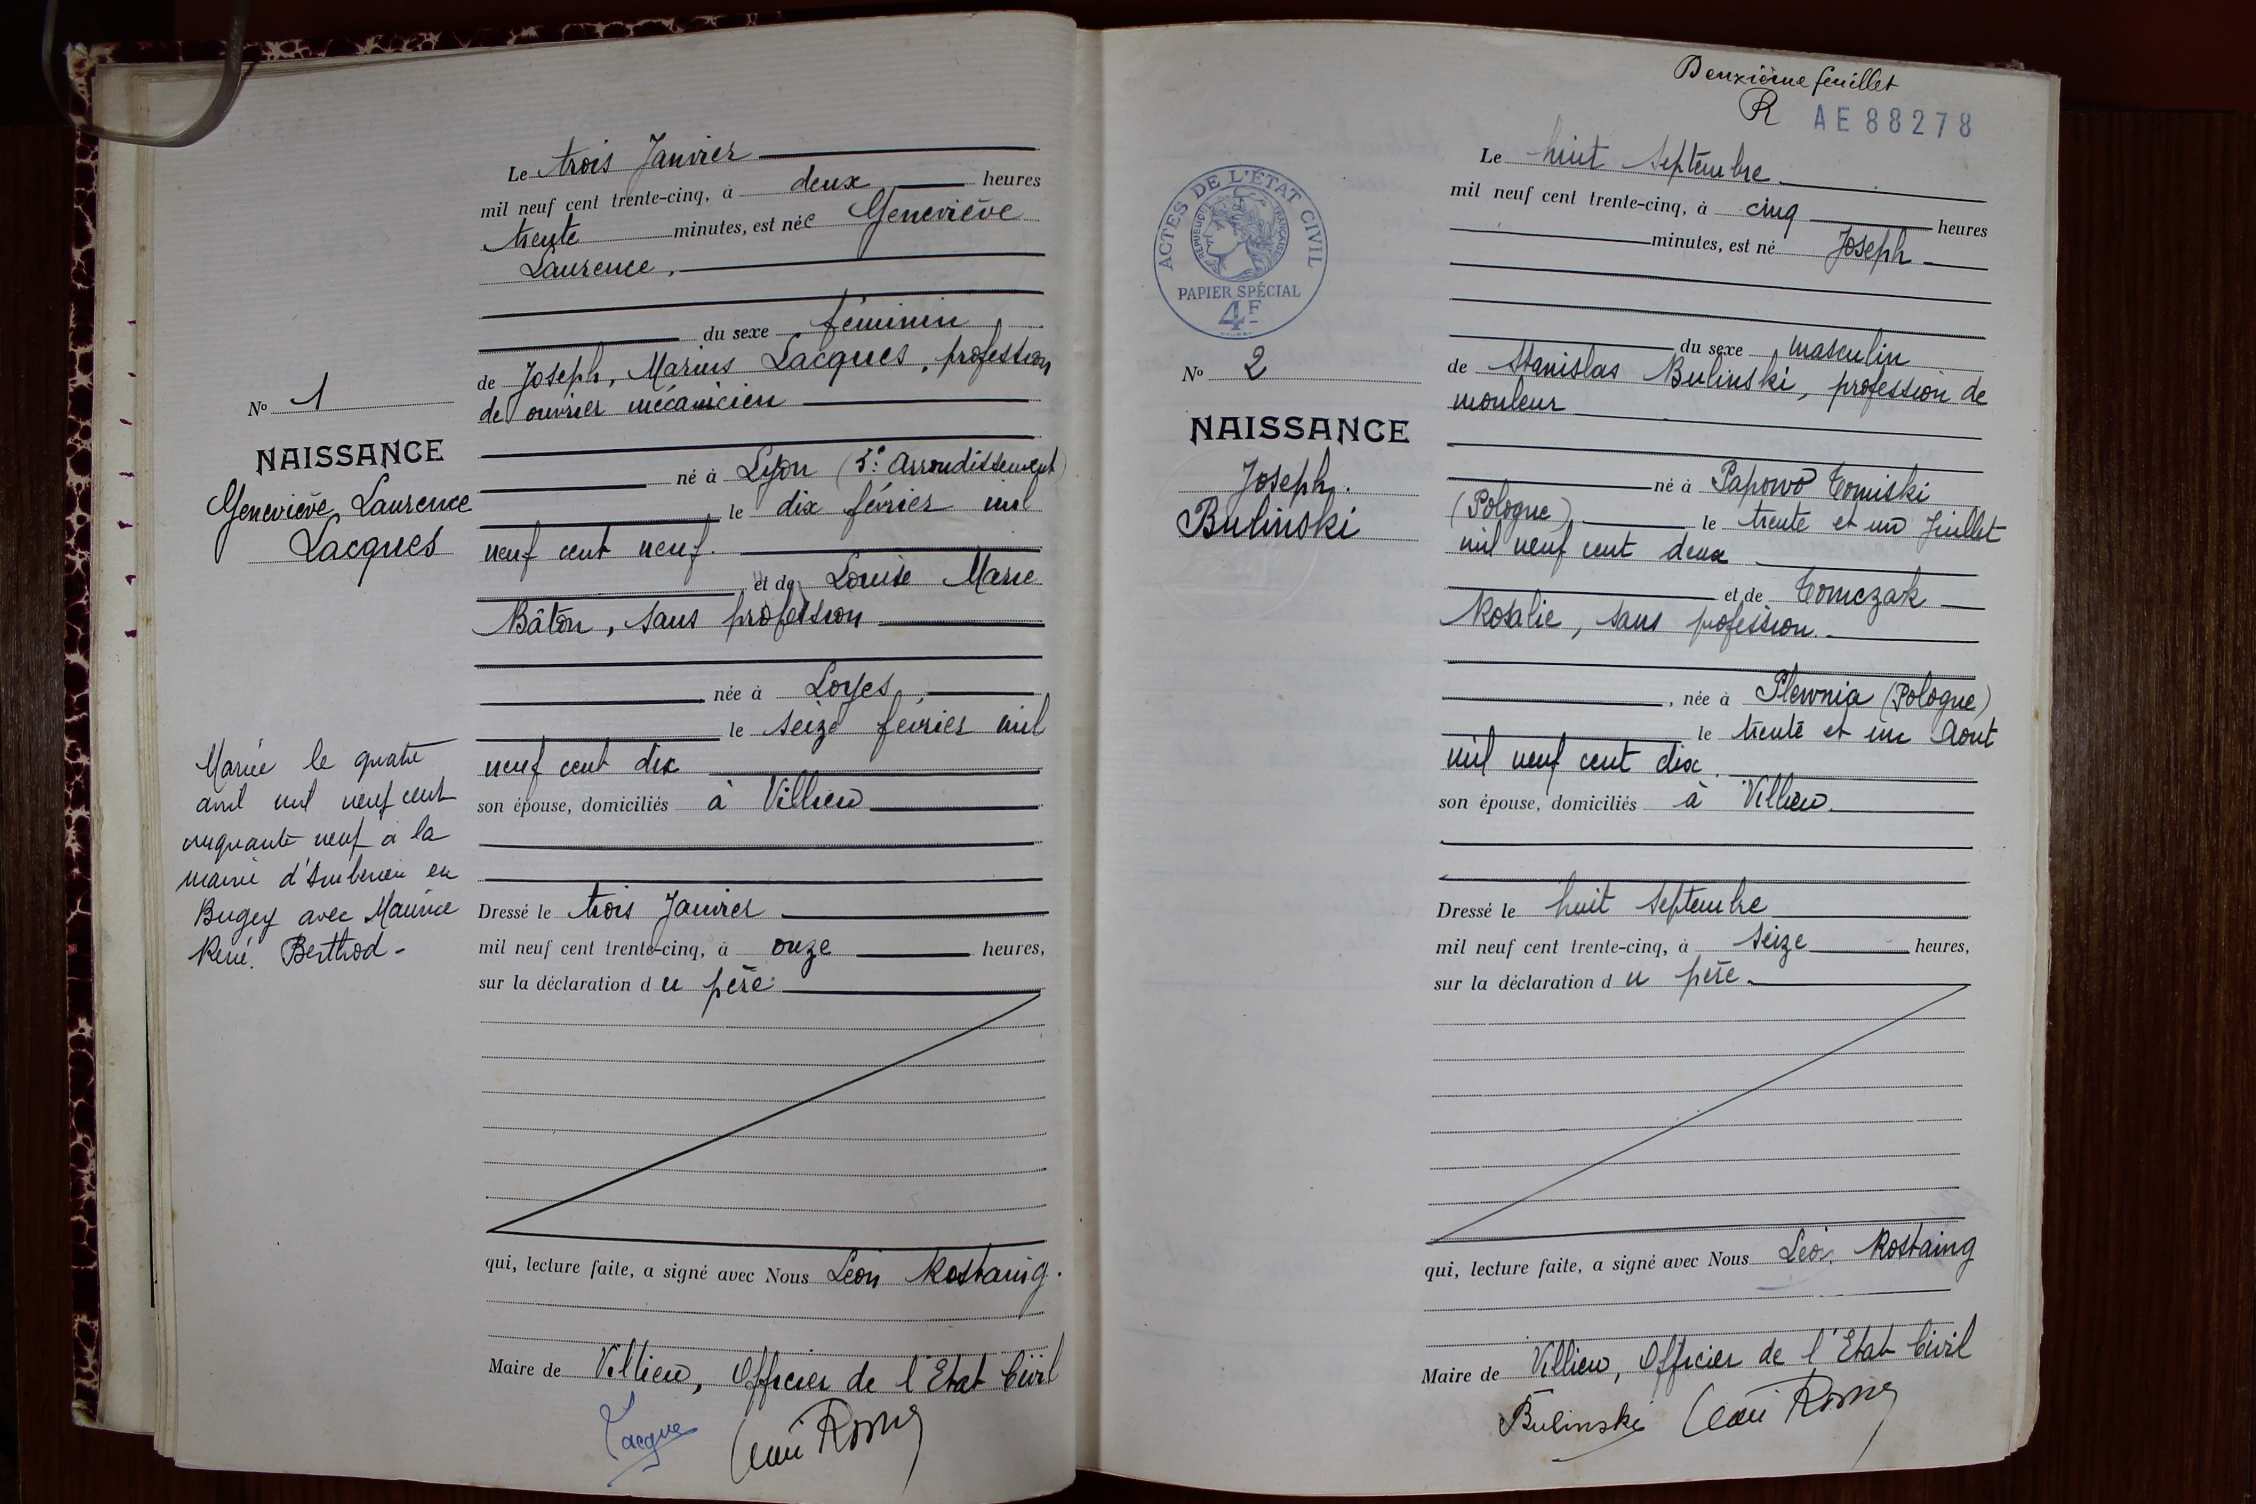 Le trois Janvier
mil neuf cent trente-cinq, à deux heures
trente minutes, est née Geneviève
Laurence,
du sexe féminin
de Joseph, Marius Lacques, profession
de ouvrier mécanicien
né à Lyon (5e Arrondissement)
le dix février mil
neuf cent neuf.
et de Louise Marie
Bâton, sans profession
née à Loyes,
le seize février mil
neuf cent dix
son épouse, domiciliés à Villieu
Dressé le trois Janvier
mil neuf cent trente-cinq, à onze heures,
sur la déclaration du père
qui, lecture faite, a signé avec Nous Léon Rostaing.
Maire de Villieu, Officier de l'Etat Civil
Lacques
No 1
NAISSANCE
Geneviève Laurence
Lacques
Mariée le quatre
avril mil neuf cent
cinquante neuf à la
mairie d'Ambérieu en
Bugey avec Maurice
René Berthod -
Deuxième feuillet
R AE 88278
ACTES DE L'ÉTAT CIVIL
RÉPUBLIQUE FRANÇAISE
PAPIER SPÉCIAL
4F
No 2
NAISSANCE
Joseph.
Bulinski
Le huit Septembre
mil neuf cent trente-cinq, à cinq heures
minutes, est né Joseph
du sexe masculin
de Stanislas Bulinski, profession de
mouleur
né à Papowo Tomiski
(Pologne) le trente et un Juillet
mil neuf cent deux
et de Tomczak
Rosalie, sans profession.
, née à Plewnia (Pologne)
le trente et un Aout
mil neuf cent dix.
son épouse, domiciliés à Villieu.
Dressé le huit Septembre
mil neuf cent trente-cinq, à seize heures,
sur la déclaration du père.
qui, lecture faite, a signé avec Nous Léon Rostaing
Maire de Villieu, Officier de l'Etat Civil
Bulinski